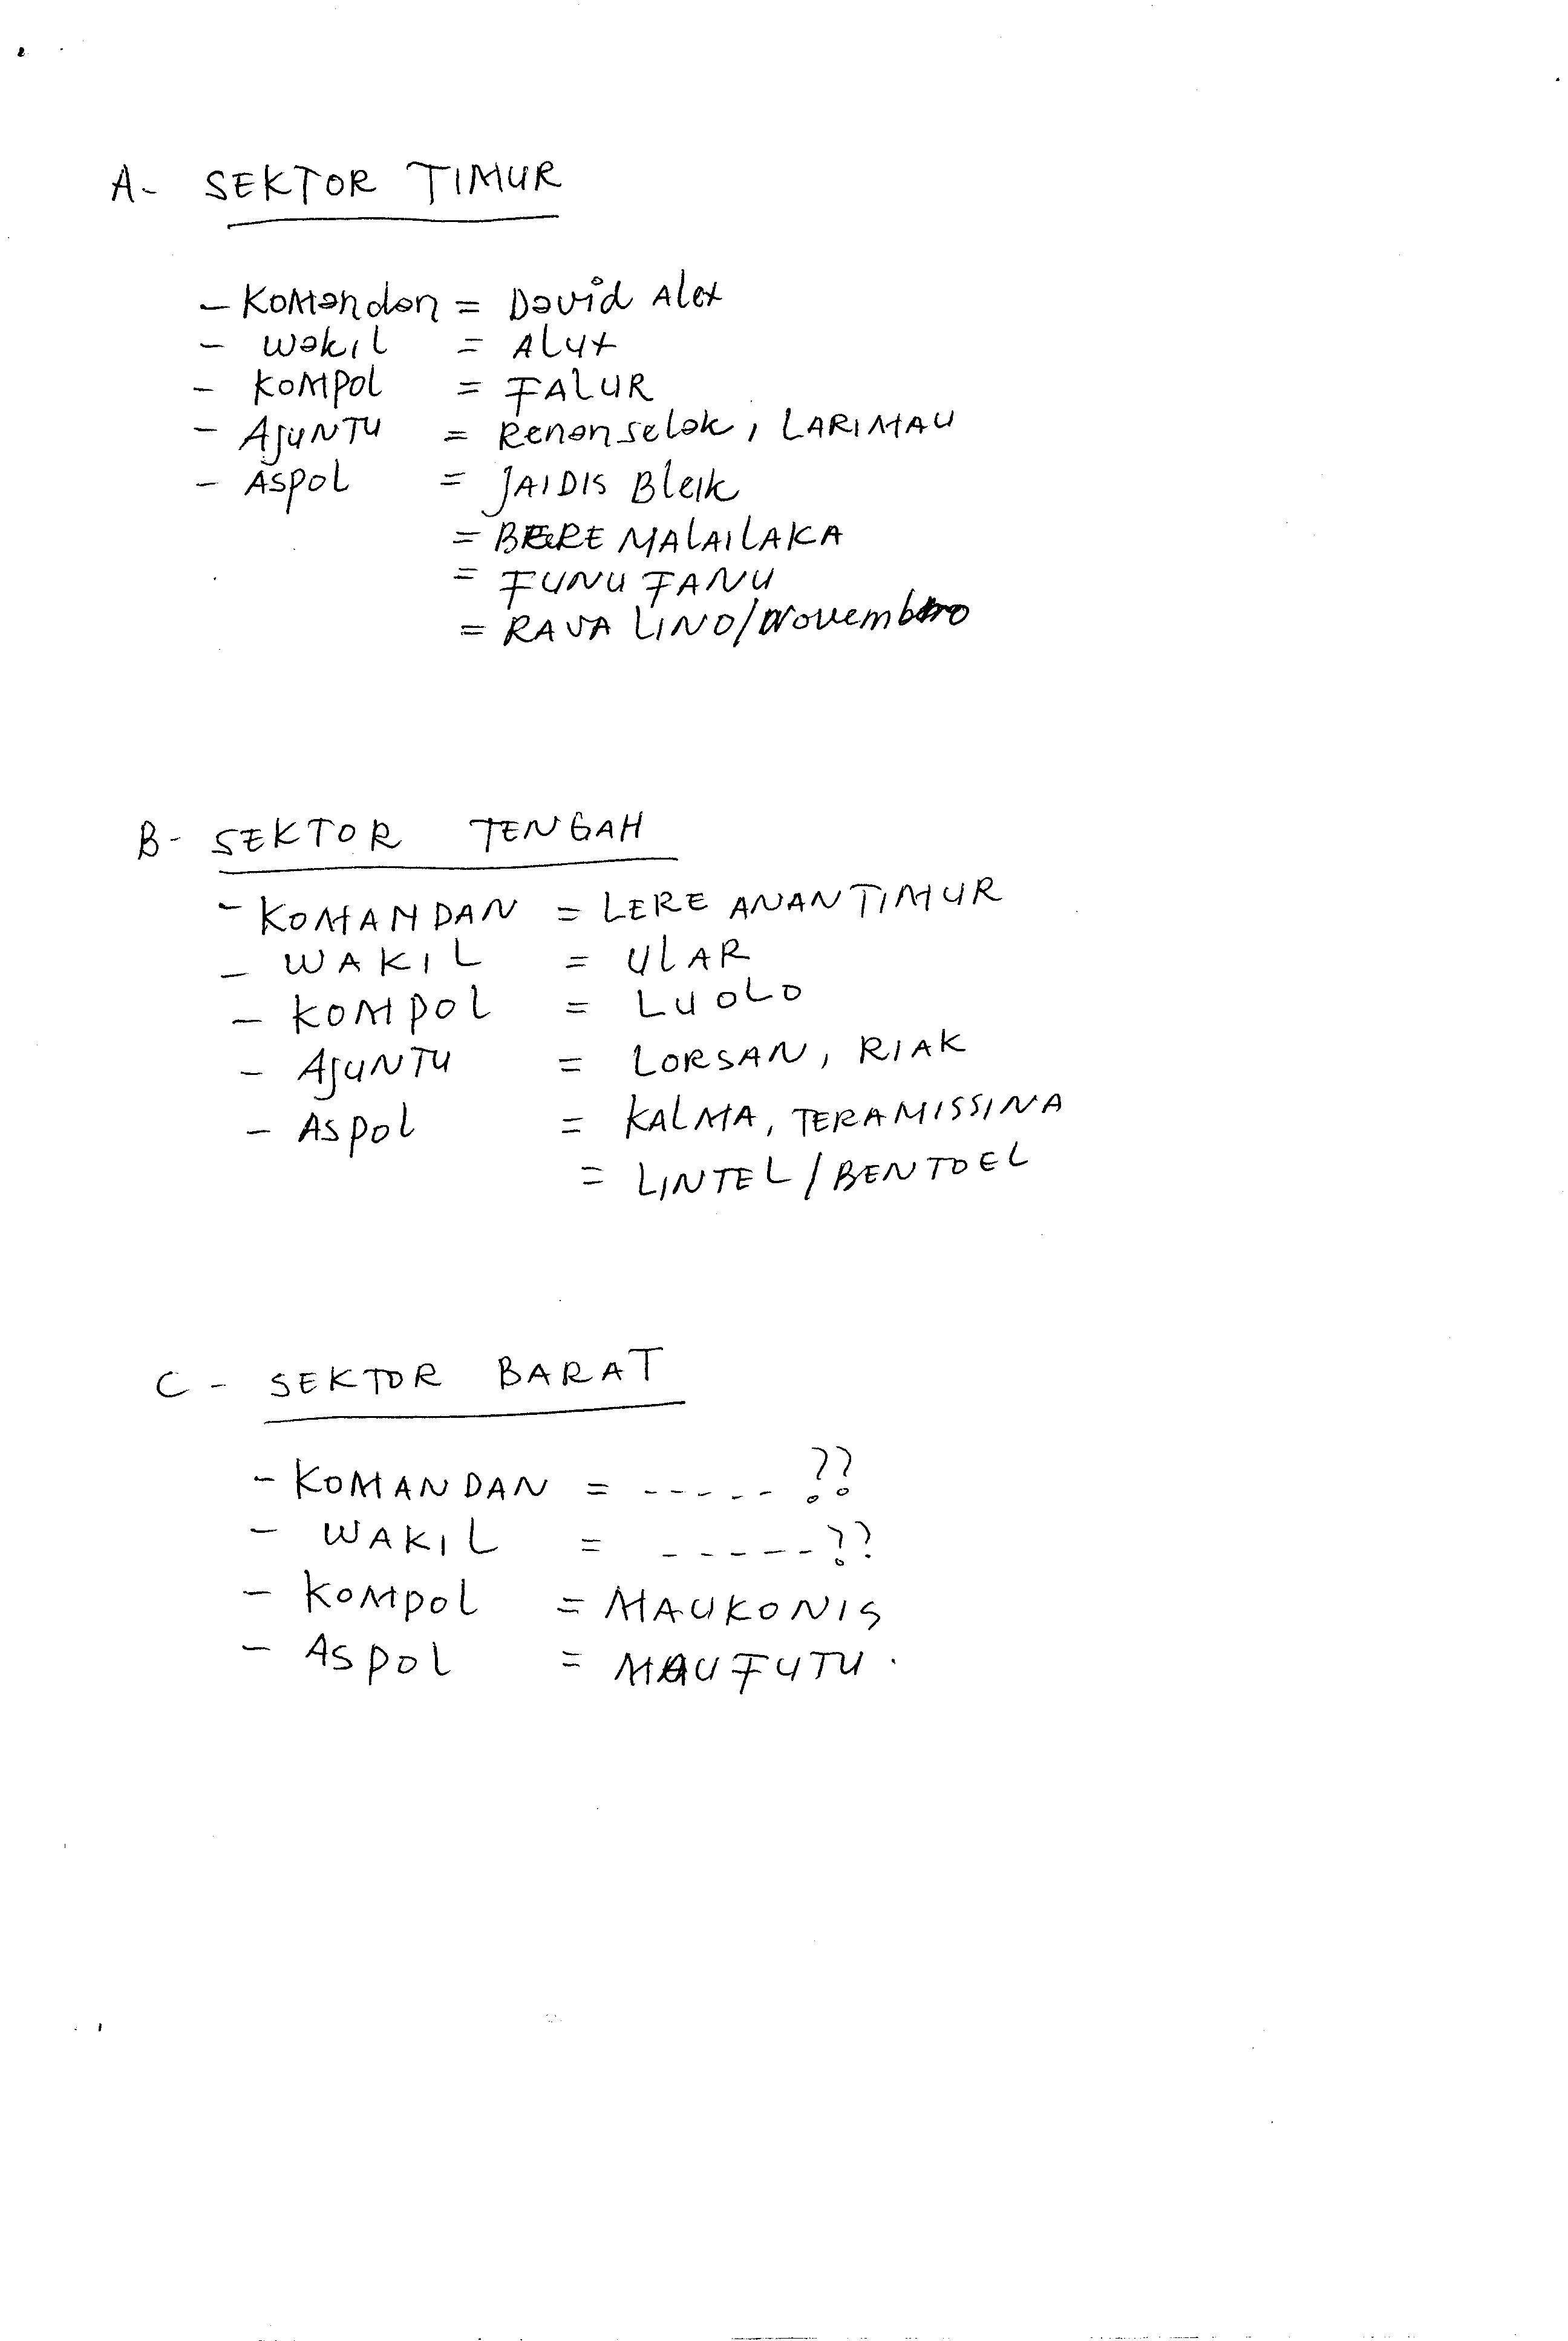 A- SEKTOR TIMUR
- Komandan = David Alex
- Wakil = ALUX
- KOMPOL = FALUR
- AJUNTU = Renan selak, LARIMAU
- ASPOL = JAIDIS Bleik
= BERE MALAILAKA
= FUNU FANU
= RAVA LINO/Novembro
B- SEKTOR TENGAH
- KOMANDAN = LERE ANAN TIMUR
- WAKIL = ULAR
- KOMPOL = LUOLO
- AJUNTU = LORSAN, RIAK
- ASPOL = KALMA, TERAMISSINA
= LINTEL/BENTOEL
C- SEKTOR BARAT
- KOMANDAN = ----- ??
- WAKIL = ----- ??
- KOMPOL = MAUKONIS
- ASPOL = MAUFUTU.